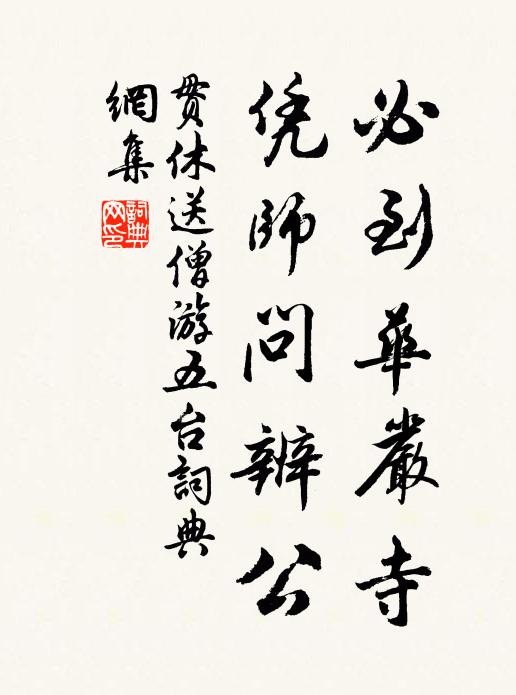 必到華嚴寺
凭師問辨公
貫休送僧游五台詞典
網集
詞典網印